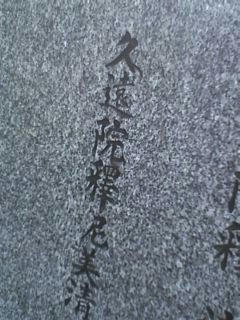 久遠院釋尼美清